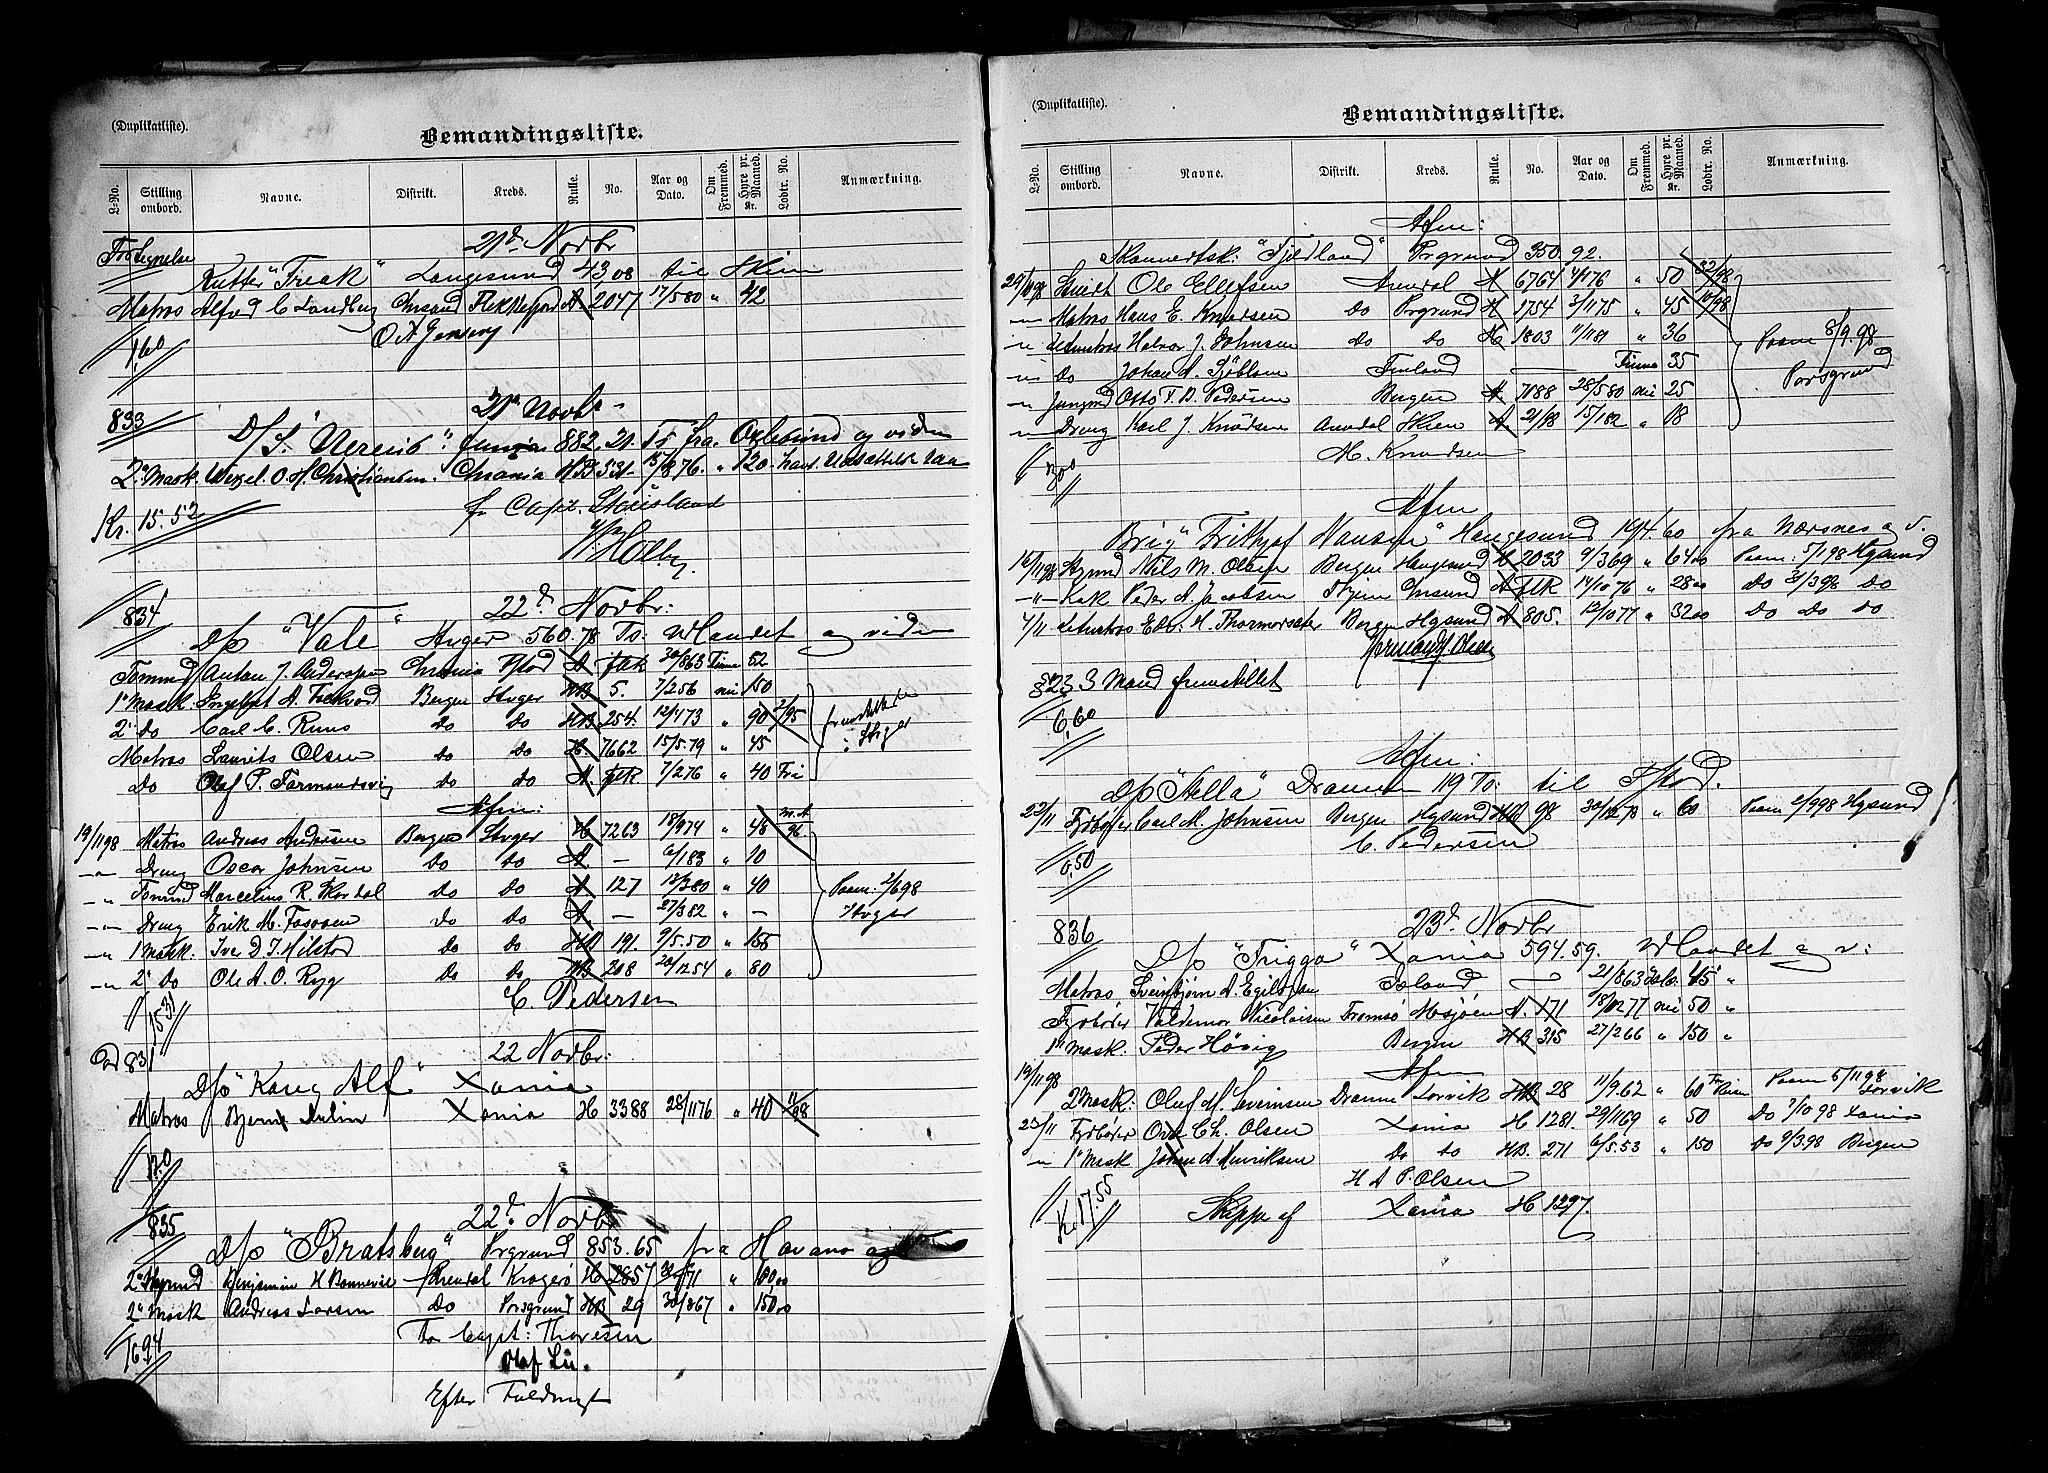 (Duplikatliste).
Bemandingsliste.
L-No. Stilling ombord. Navne. Distrikt. Kreds. Rulle. No. Aar og Dato. Om Fremmed. Hyre pr. Maaned. Kr. Lodtr. No. Anmærkning.
21d Novbr
Kutter "Freak" Langesund 43,08 til Skien
Matros Alfred C Lundberg Chrsand Flekkefjord A 2047 17/5 80 " 42
O. A. Jensen
1,60
833
21de Novbr
D/S. "Nereus" 882.21. Ts fra og videre
2den Mask. Wetzel. O. M. Christiansen. Chrania HB 331. 15/8 76. " 120
Kr. 15.52
fr Capt. Stousland
834
22d Novbr:
D/s "Vale" Stvger 560.78 Ts: Udlandet og videre
Tømmd Anton J. Anderssen Chrania Fstad A. flk 30/8 63 52
1ste Mask. Ingebgt A. Bergen Stvger HB 5. 7/2 56 nei 150
2. Do Carl C. Do Do HB. 254. 12/4 73 " 90 2/95
Matros Laurits Olsen do Do H. 7662 15/5.79 " 45
fremstillet i Stvger
Do Olaf P. do do A. flk 7/2 76 " 40 Fri
Afm:
19/11 98 Matros Andreas Andersen Bergen Stvger H 7263 18/9 74 " 45 96
-"- Dreng Oscar Johnsen Do Do A. — 6/1 83 " 10
-"- Tømmd Marcelius R. Do Do A 127 12/3 80 " 40 Paam. 2/6 98
-"- Dreng Erik M. do do A. — 27/3 82 " — Stvger
-"- 1 Mask. Ive D. J. Hilstad Do Do HB 191. 9/5.50 " 155
-"- 2. Do Ole A. O. Rygg Do Do HB 208 20/12 54 " 80
C. Pedersen
15.31
Ad 831
22 Novbr:
D/s "Kong Alf" Xania
Matros Bjerne Xania H 3388 28/11 76 " 40 11/98
835
22d. Novbr
D/s "Bratsberg" Prgrund 853.65 fra Havana
2den Styrmd Benjamin H Bonnevie Arendal Kragerø H 2857 " 180,00
2den Mask Andreas Larsen Do Porsgrund HB 29 30/8 67 " 150,00
For Capt: Thoresen
Olaf Lie.
16.94
Efter Fuldmagt
(Duplikatliste).
Bemandingsliste.
L-No. Stilling ombord. Navne. Distrikt. Kreds. Rulle. No. Aar og Dato. Om Fremmed. Hyre pr. Maaned. Kr. Lodtr. No. Anmærkning.
Afm:
Skonnertsk: "Fjeldland" Prgrund 350.92.
Ole Ellefsen Arendal H 6764 4/1 76 " 50 32/98
-"- Matros Hans E. Knudsen Do Prgrund H 1754 3/11 75 " 45 10/98
-"- Letmatros Halvor J. Johnsen do Do H 1803 11/1 81 " 36 Paam 8/9.98
-"- Do Johan A. Sjöblom Finland Finne 35 Porsgrund
-"- Jungmd Otto T. B. Pedersen Bergen A. 7188 28/5 80 nei 25
-"- Dreng Karl J. Knudsen Arendal Skien A 21/98 15/1 82 " 18
M. Knudsen
Afm
Brig "Frithjof Nansen" Haugesund 194.60 fra Nærsnes og v.
16/11 98 Styrmd Nils M. Olsen Bergen Haugesund H 2033 9/3 69 " 64 00 Paam: 5/1 98 Hgsund
-"- Kok Peder A. Jacobsen Chrsund A flk 14/10 76 " 28 00 Do 31/3 98 Do
4/11 Letmatros Edv. H. Thormorsæter Bergen Hgsund A 805. 12/10 77 " 32 00 Do Do Do
Olsen
3 Mand fremstillet
6,60
Afm:
D/s "Stella" Drammen 119 Ts: til Fstad.
22/11 Fyrbøter Carl M. Johnsen Bergen Hgsund HB 98 30/12 78 " 60 Paam 2/9 98 Hgsund
C. Pedersen
0,50
836
23d. Novbr
D/s "Frigga" Xania 594.59. Udlandet og v:
Matros Sveinbjørn A. Egilssen Island — 21/8 63 Isl. 45 "
Fyrbøter Valdemar Nicolaisen Tromsø Mosjøen A. 171 18/12 77 nei 50 "
1ste Mask. Peder Høvig Bergen HB 315 27/2 66 " 150 "
Afm
19/11 98 2 Mask: Oluf M. Sveinsen Dramm Larvik HB 28 11/9.62 " 60 Paam 5/11 98 Larvik
23/11 Fyrbøter Ove Ch. Olsen Xania H 1281. 29/11 69 " 50 Do 7/10 98 Xania
-"- 1ste Mask Johan A Henriksen Do do HB. 271 6/5.53 " 150 Do 9/3.98 Bergen
H A P. Olsen
Kr. 17.55
Skipper af Xania H 1297.